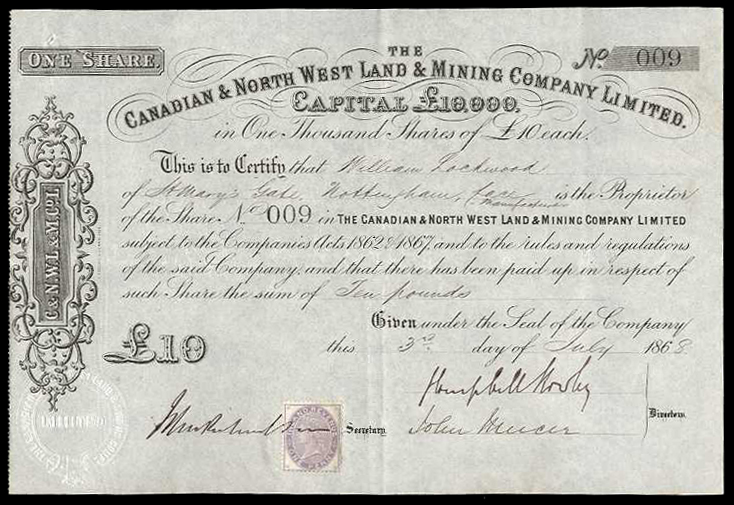 ONE SHARE.
THE
No. 009
CANADIAN & NORTH WEST LAND & MINING COMPANY LIMITED.
CAPITAL £10,000.
in One Thousand Shares of £10 each.
This is to Certify that William Lockwood
of St Mary's Gate, Nottingham, Lace Manufacturer is the Proprietor
of the Share No. 009 in THE CANADIAN & NORTH WEST LAND & MINING COMPANY LIMITED
subject to the Companies Acts 1862 & 1867, and to the rules and regulations
of the said Company, and that there has been paid up in respect of
such Share the sum of Ten pounds
C & N.W.L. & M.CO. LD.
Given under the Seal of the Company
£10
this 3rd day of July 1868.
Directors.
John Mercer
Secretary.